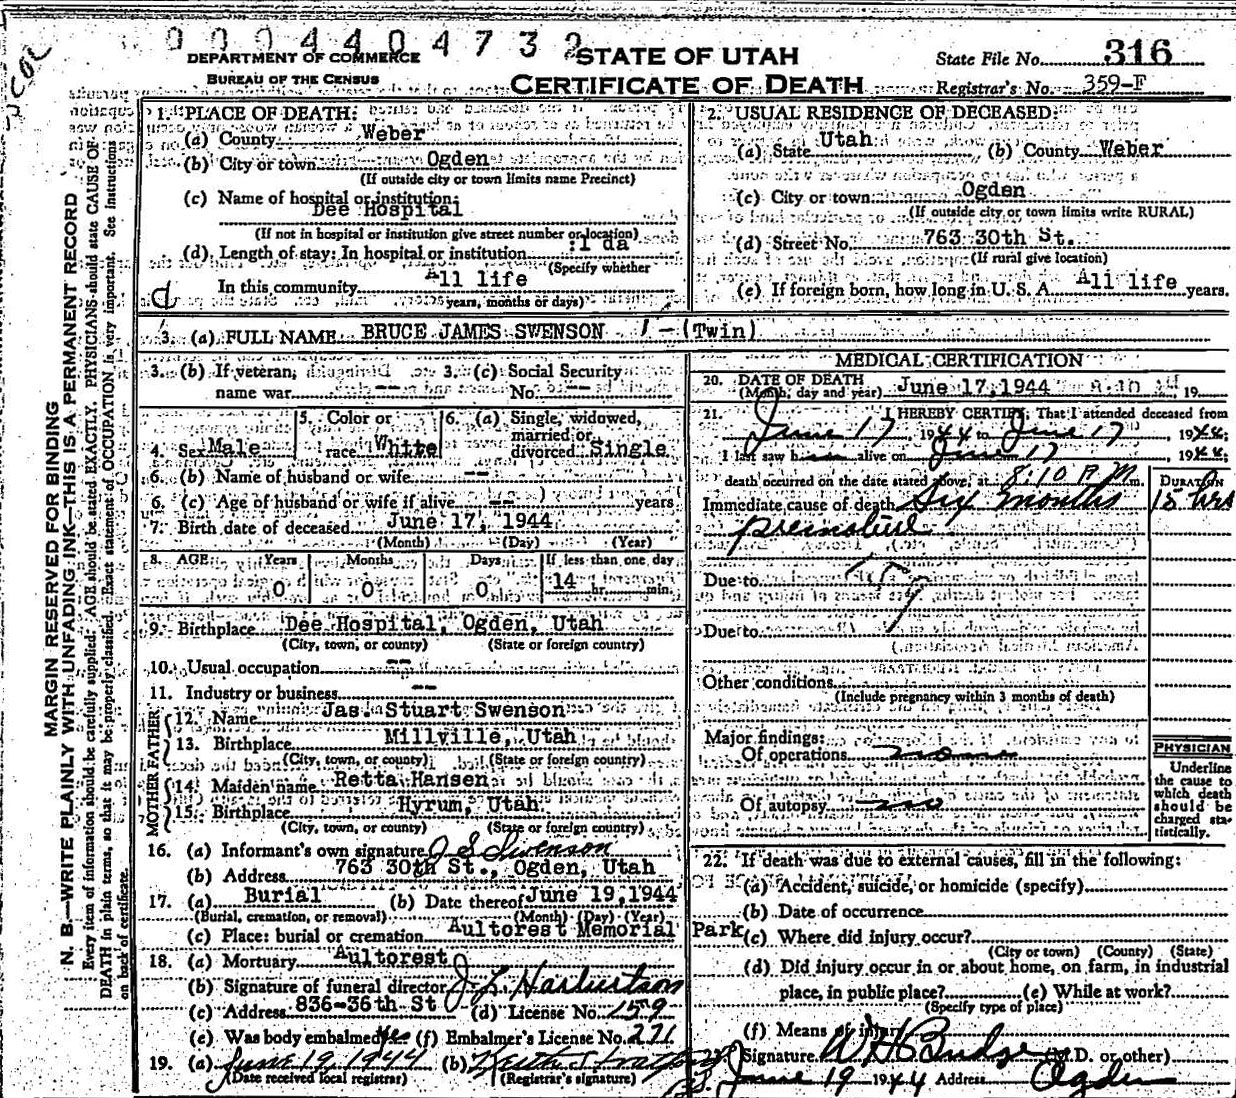 0004404732
DEPARTMENT OF COMMERCE
BUREAU OF THE CENSUS
STATE OF UTAH
CERTIFICATE OF DEATH
State File No. 316
Registrar's No. 359-F
MARGIN RESERVED FOR BINDING
N. B.—WRITE PLAINLY WITH UNFADING INK—THIS IS A PERMANENT RECORD
Every item of information should be carefully supplied. AGE should be stated EXACTLY. PHYSICIANS should state CAUSE OF
DEATH in plain terms, so that it may be properly classified. Exact statement of OCCUPATION is very important. See instructions
on back of certificate.
1. PLACE OF DEATH:
(a) County Weber
(b) City or town Ogden
(If outside city or town limits name Precinct)
(c) Name of hospital or institution:
Dee Hospital
(If not in hospital or institution give street number or location)
(d) Length of stay: In hospital or institution 1 da
(Specify whether
In this community All life
years, months or days)
2. USUAL RESIDENCE OF DECEASED:
(a) State Utah (b) County Weber
(c) City or town Ogden
(If outside city or town limits write RURAL)
(d) Street No. 763 30th St.
(If rural give location)
(e) If foreign born, how long in U. S. A. All life years.
3. (a) FULL NAME: BRUCE JAMES SWENSON 1 - (Twin)
3. (b) If veteran, name war -- 3. (c) Social Security No. --
4. Sex Male 5. Color or race White 6. (a) Single, widowed, married or divorced Single
6. (b) Name of husband or wife --
6. (c) Age of husband or wife if alive -- years
7. Birth date of deceased June 17, 1944
(Month) (Day) (Year)
8. AGE Years Months Days If less than one day
0 0 0 14 hr. min.
9. Birthplace Dee Hospital, Ogden, Utah
(City, town, or county) (State or foreign country)
10. Usual occupation --
11. Industry or business --
FATHER
12. Name Jas. Stuart Swenson
13. Birthplace Millville, Utah
(City, town, or county) (State or foreign country)
MOTHER
14. Maiden name Retta Hansen
15. Birthplace Hyrum, Utah
(City, town, or county) (State or foreign country)
16. (a) Informant's own signature J S Swenson
(b) Address 763 30th St., Ogden, Utah
17. (a) Burial (b) Date thereof June 19, 1944
(Burial, cremation, or removal) (Month) (Day) (Year)
(c) Place: burial or cremation Aultorest Memorial Park
18. (a) Mortuary Aultorest
(b) Signature of funeral director J. L. Harbertson
(c) Address 836-36th St (d) License No. 159
(e) Was body embalmed yes (f) Embalmer's License No. 271
19. (a) June 19, 1944 (b) Keith
(Date received local registrar) (Registrar's signature)
MEDICAL CERTIFICATION
20. DATE OF DEATH
(Month, day and year) June 17, 1944 8:10 19
21. I HEREBY CERTIFY, That I attended deceased from
June 17, 1944 to June 17, 1944;
I last saw him alive on June 17, 1944;
death occurred on the date stated above, at 8:10 P.M. m.
DURATION
Immediate cause of death Six months 15 hrs
premature
Due to
Due to
Other conditions
(Include pregnancy within 3 months of death)
Major findings:
Of operations none
Of autopsy no
PHYSICIAN
Underline
the cause to
which death
should be
charged sta-
tistically.
22. If death was due to external causes, fill in the following:
(a) Accident, suicide, or homicide (specify)
(b) Date of occurrence
(c) Where did injury occur?
(City or town) (County) (State)
(d) Did injury occur in or about home, on farm, in industrial
place, in public place? (e) While at work?
(Specify type of place)
(f) Means of injury
23. Signature W H Budge (M.D. or other)
June 19 1944 Address Ogden